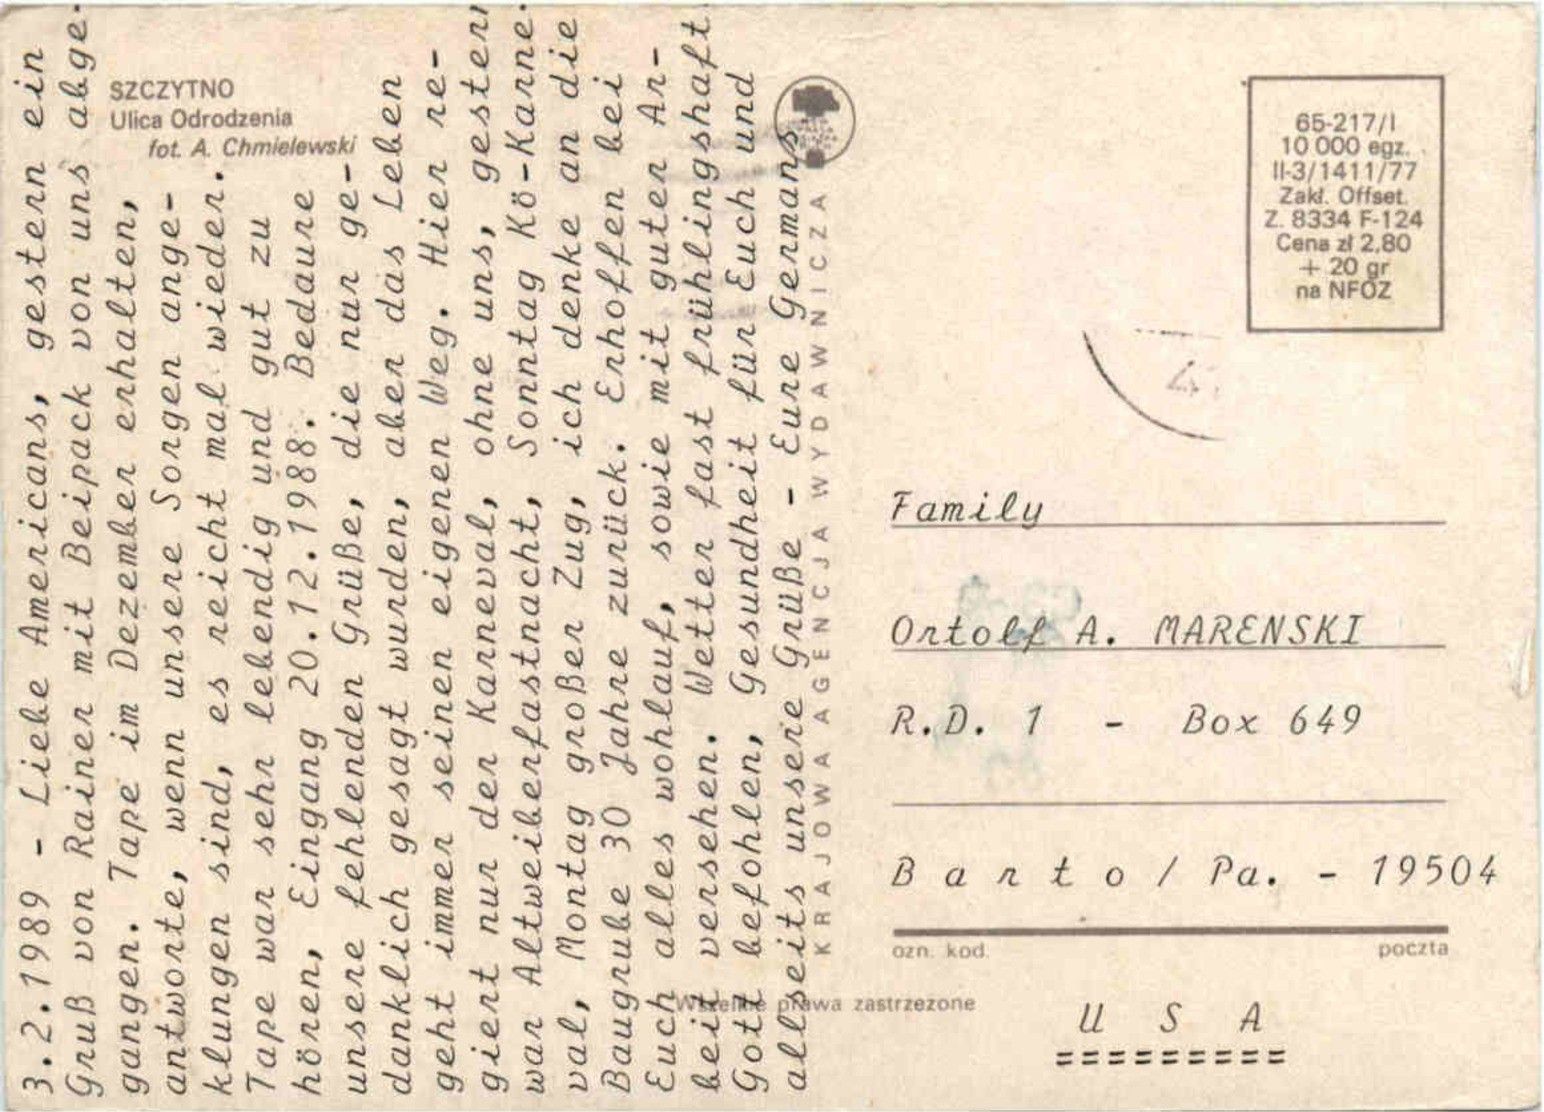 SZCZYTNO
Ulica Odrodzenia
fot. A. Chmielewski
3.2.1989 - Liebe Americans, gestern ein
Gruß von Rainer mit Beipack von uns abge-
gangen. Tape im Dezember erhalten,
antworte, wenn unsere Sorgen ange-
klungen sind, es reicht mal wieder.
Tape war sehr lebendig und gut zu
hören, Eingang 20.12.1988. Bedaure
unsere fehlenden Grüße, die nur ge-
danklich gesagt wurden, aber das Leben
geht immer seinen eigenen Weg. Hier re-
giert nur der Karneval, ohne uns, gestern
war Altweiberfastnacht, Sonntag Kö-Karne-
val, Montag großer Zug, ich denke an die
Baugrube 30 Jahre zurück. Erhoffen bei
Euch alles wohlauf, sowie mit guter Ar-
beit versehen. Wetter fast frühlingshaft.
Gott befohlen, Gesundheit für Euch und
allseits unsere Grüße - Eure Germans
KRAJOWA AGENCJA WYDAWNICZA
65-217/I
10 000 egz.
II-3/1411/77
Zakł. Offset.
Z. 8334 F-124
Cena zł 2,80
+ 20 gr
na NFOZ
Family
Ortolf A. MARENSKI
R.D. 1 - Box 649
Barto / Pa. - 19504
ozn. kod. poczta
Wszelkie prawa zastrzezone
U S A
=========